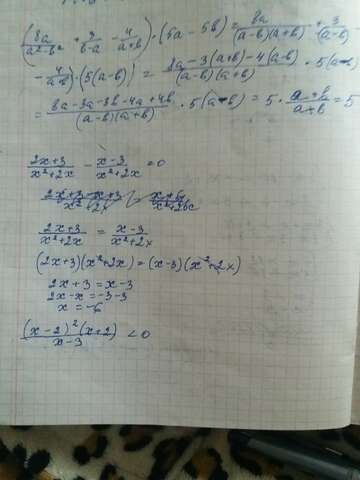 (8a/(a²-b²) + 3/(b-a) - 4/(a+b)) · (5a-5b) = 8a/((a-b)(a+b)) + 3/(a-b)
- 4/(a+b)) · (5(a-b)) = (8a-3(a+b)-4(a-b))/((a-b)(a+b)) · 5(a-b)
= (8a-3a-3b-4a+4b)/((a-b)(a+b)) · 5(a-b) = 5 · (a+b)/(a+b) = 5
(2x+3)/(x²+2x) - (x-3)/(x²+2x) = 0
(2x+3)/(x²+2x) = (x-3)/(x²+2x)
(2x+3)(x²+2x) = (x-3)(x²+2x)
2x+3 = x-3
2x-x = -3-3
x = -6
(x-2)²(x+2)/(x-3) < 0